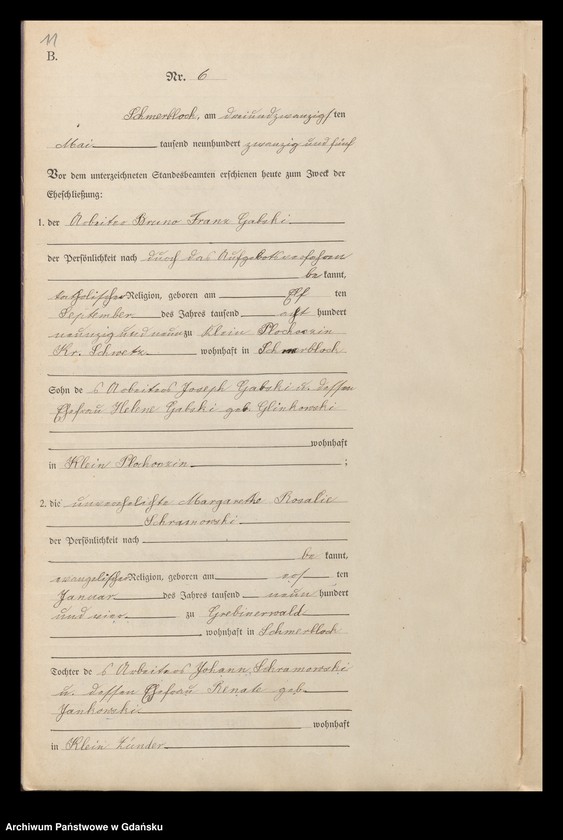 11
B.
Nr. 6
Schmerblock, am dreiundzwanzigsten
Mai tausend neunhundert zwanzig und fünf
Vor dem unterzeichneten Standesbeamten erschienen heute zum Zweck der
Eheschließung:
1. der Arbeiter Bruno Franz Gabski
der Persönlichkeit nach durch das Aufgebotsverfahren
be kannt,
katholischer Religion, geboren am elf ten
September des Jahres tausend acht hundert
neunzig und neun zu Klein Plochoczin
Kr. Schwetz wohnhaft in Schmerblock
Sohn des Arbeiters Joseph Gabski u. dessen
Ehefrau Helene Gabski geb. Glinkowski
wohnhaft
in Klein Plochoczin ;
2. die unverehelichte Margarethe Rosalie
Schramowski
der Persönlichkeit nach
be kannt,
evangelischer Religion, geboren am ten
Januar des Jahres tausend neun hundert
und vier zu Grebinerwald
, wohnhaft in Schmerblock
Tochter des Arbeiters Johann Schramowski
u. dessen Ehefrau Renate geb.
Jankowski
wohnhaft
in Klein Zünder
Archiwum Państwowe w Gdańsku